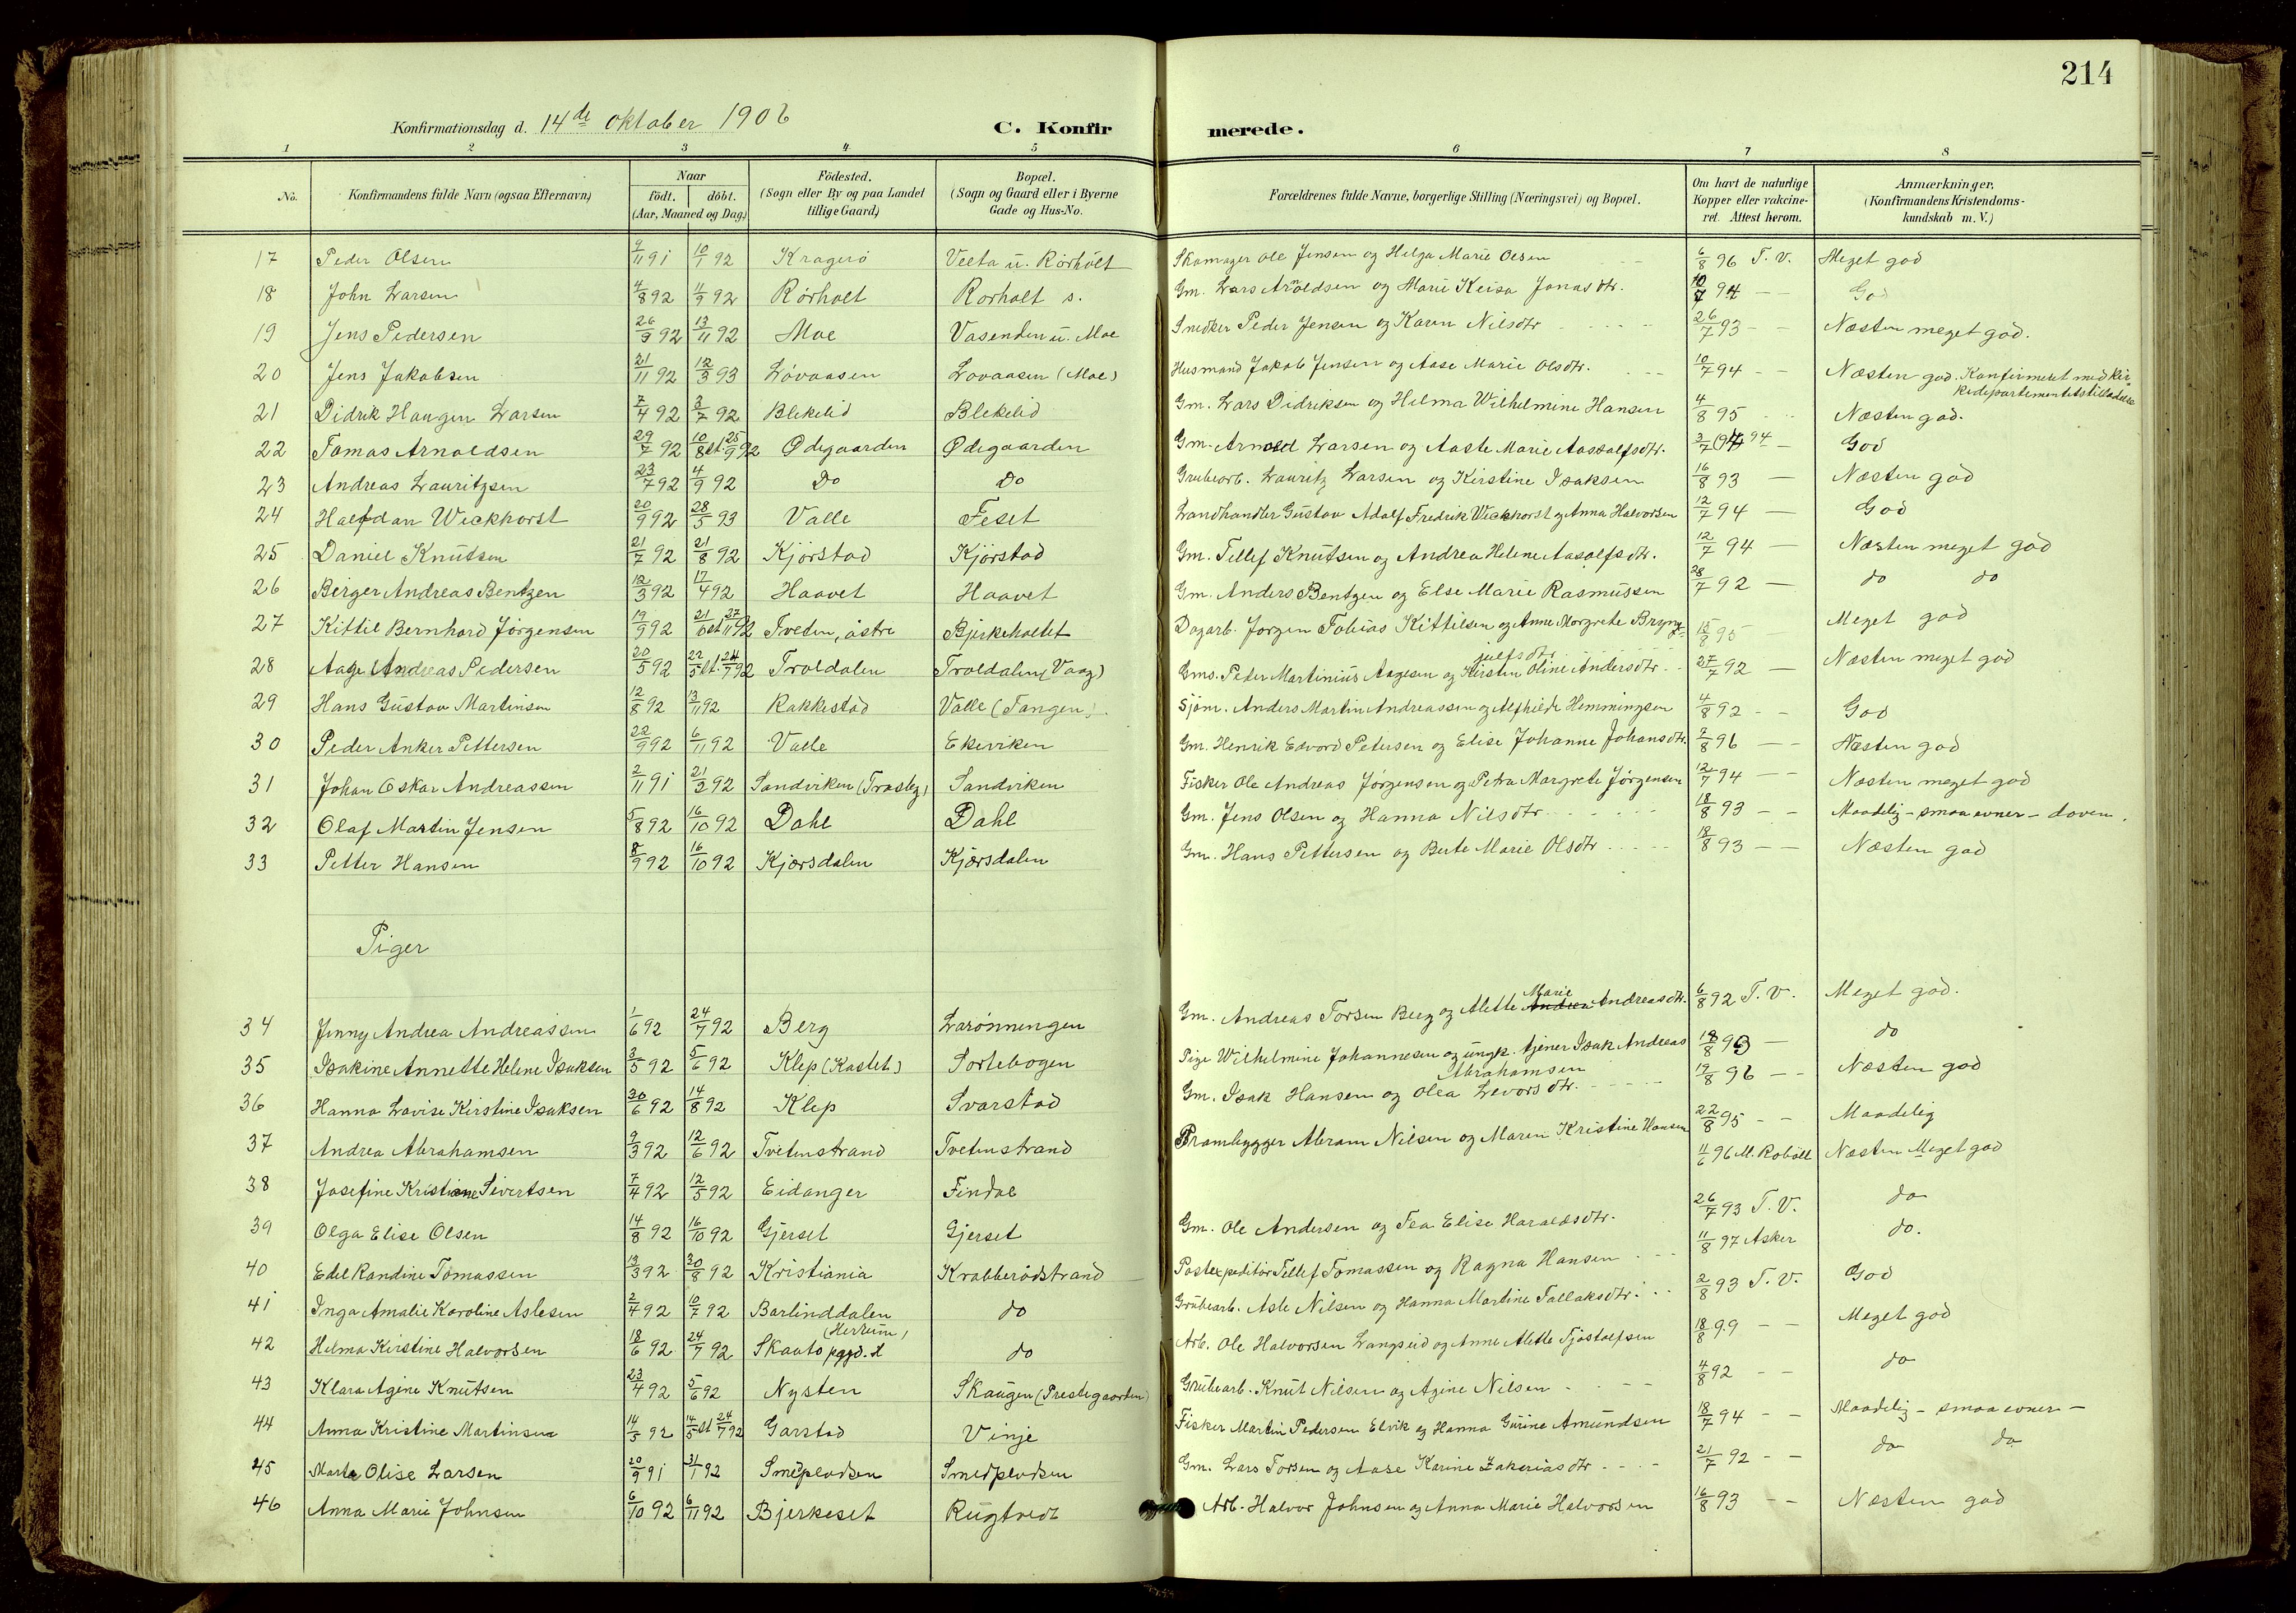 214
Konfirmationsdag d. 14de Oktober 1906 C. Konfirmerede.
1 2 3 4 5 6 7 8
No. Konfirmandens fulde Navn (ogsaa Efternavn) Naar födt. döbt. (Aar, Maaned og Dag) Födested. (Sogn eller By og paa Landet tillige Gaard) Bopæl. (Sogn og Gaard eller i Byerne Gade og Hus-No. Forældrenes fulde Navne, borgerlige Stilling (Næringsvei) og Bopæl. Om havt de naturlige Kopper eller vakcineret. Attest herom. Anmærkninger, (Konfirmandens Kristendomskundskab m. V.)
17 Peder Olsen 9/11 91 10/1 92 Kragerö Veeta u. Rörholt Skomager Ole Jensen og Helga Marie Olsen 6/8 96 T. V. Meget god
18 John Larsen 4/8 92 11/9 92 Rörholt Rorholt s. Gm. Lars Arnoldsen og Marie Keisa Jonasdtr. 10/7 94 — God
19 Jens Pedersen 26/9 92 13/11 92 Moe Vasenden u. Moe Snedker Peder Jensen og Karen Nilsdtr 26/7 93 - - Næsten meget god.
20 Jens Jakobsen 21/11 92 12/3 93 Lövaasen Lovaasen (Moe) Husmand Jakob Jensen og Aase Marie Olsdtr. 10/7 94 - - Næsten god. Konfirmeret med Kirkedepartementets tilladelse
21 Didrik Haugen Larsen 7/4 92 3/7 92 Blekelid Blekelid Gm. Lars Didriksen og Helma Wilhelmine Hansen 4/8 95 Næsten god.
22 Tomas Arnoldsen 29/7 92 10/8 st. 25/9 92 Ødegaarden Ødegaarden Gm. Arnold Larsen og Aaste Marie Aasolfsdtr. 3/7 94 — God
23 Andreas Lauritzsen 23/7 92 4/9 92 Do Do Grubearb. Lauritz Larsen og Kirstine Isaksen 16/8 93 — Næsten god
24 Halfdan Wickhorst 20/9 92 28/5 93 Valle Feset Landhandler Gustav Adolf Fredrik Wickhorst og Anna Halvorsen 12/7 94 — God
25 Daniel Knutsen 21/7 92 21/8 92 Kjörstad Kjörstad Gm. Tellef Knutsen og Andrea Helene Aasolfsdtr. 12/7 94 — Næsten meget god
26 Berger Andreas Bentzen 12/3 92 17/4 92 Haavet Haavet Gm. Anders Bentzen og Else Marie Rasmussen 28/7 92 — do do
27 Kittil Bernhard Jörgensen 19/9 92 21/10 st 27/11 92 Tveten, östre Bjerkeholtet Dagarb. Jorgen Tobias Kittilsen og Anne Margrete Bryngjulfsdtr. 15/8 95 — Meget god
28 Aage Andreas Pedersen 20/5 92 22/5 st. 24/7 92 Troldalen Troldalen (Vaag) Gms. Peder Martinius Aagesen og Kirsten Oline Andersdtr 27/7 92 — Næsten meget god
29 Hans Gustav Martinsen 12/8 92 13/11 92 Rakkestad Valle (Tangen). Sjöm. Anders Martin Andreassen og Alfhilde Hemmingsen 4/8 92 - - God
30 Peder Anker Pettersen 22/9 92 6/11 92 Valle Ekeviken Gm. Henrik Edvard Petersen og Elise Johanne Johansdtr. 7/8 96 — - Næsten god
31 Johan Oskar Andreassen 2/11 91 21/2 92 Sandviken (Trosby) Sandviken Fisker Ole Andreas Jörgensen og Petra Margrete Jörgensen 12/7 94 - - Næsten meget god
32 Olaf Martin Jensen 5/8 92 16/10 92 Dahl Dahl Gm. Jens Olsen og Hanna Nilsdtr 18/8 93 - - Maadelig - smaa evner - doven.
33 Petter Hansen 8/9 92 16/10 92 Kjörsdalen Kjörsdalen Gm. Hans Pettersen og Berte Marie Olsdtr 18/8 93 — - Næsten god
Piger
34 Jenny Andrea Andreassen 1/6 92 24/7 92 Berg Larönningen Gm. Andreas Torsen Berg og Alette Marie Andreasdtr. 6/8 92 T. V. Meget god.
35 Isakine Annette Helene Isaksen 3/5 92 5/6 92 Klep (Kastet) Sortebogen Pige Wilhelmine Johannesen og ungk. tjener Isak Andreas Abrahamsen 18/8 93 — do
36 Hanna Lovise Kirstine Isaksen 30/6 92 14/8 92 Klep Svarstad Gm. Isak Hansen og Olea Levorsdtr. 19/8 96 - - Næsten god
37 Andrea Abrahamsen 9/3 92 12/6 92 Tvetenstrand Tvetenstrand Prambygger Abram Nilsen og Maren Kristine Hansen 22/8 95 - - Maadelig
38 Josefine Kristiane Sivertsen 7/4 92 12/5 92 Eidanger Findal 11/6 96 Næsten Meget god
39 Olga Elise Olsen 14/8 92 16/10 92 Gjerset Gjerset Gm. Ole Andersen og Tea Elise Haraldsdtr. 26/7 93 T. V. do
40 Edel Randine Tomassen 13/3 92 30/8 92 Kristiania Krabberödstrand Postexpeditör Tellef Tomassen og Ragna Hansen 11/8 97 Asker do.
41 Inga Amalie Karoline Aslesen 2/4 92 10/7 92 Barlinddalen do Grubearb. Asle Nilsen og Hanna Martine Tallaksdtr. 2/8 93 T. V. God
42 Helma Kirstine Halvorsen 18/6 92 24/7 92 Skaato pgjd. do Arb. Ole Halvorsen Langseid og Anne Alette Tjöstolfsen 18/8 99 - - Meget god
43 Klara Agine Knutsen 23/4 92 5/6 92 Nysten Skaugen (Prestegaarden) Grubearb. Knut Nilsen og Agine Nilsen 4/8 92 - - do
44 Anna Kristine Martinsen 14/5 92 14/5 st 24/7 92 Garstad Vinje Fisker Martin Pedersen Elvik og Hanna Gurine Amundsen 18/7 94 - - Maadelig - smaa evner -
45 Marte Olise Larsen 20/9 91 31/1 92 Smedplodsen Smedplodsen Gm. Lars Torsen og Aase Karine Zakariasdtr 21/7 92 - - do do
46 Anna Marie Johnsen 6/10 92 6/11 92 Bjerkeset Rugtvedt Arb. Halvor Johnsen og Anna Marie Halvorsen 16/8 93 - - Næsten god